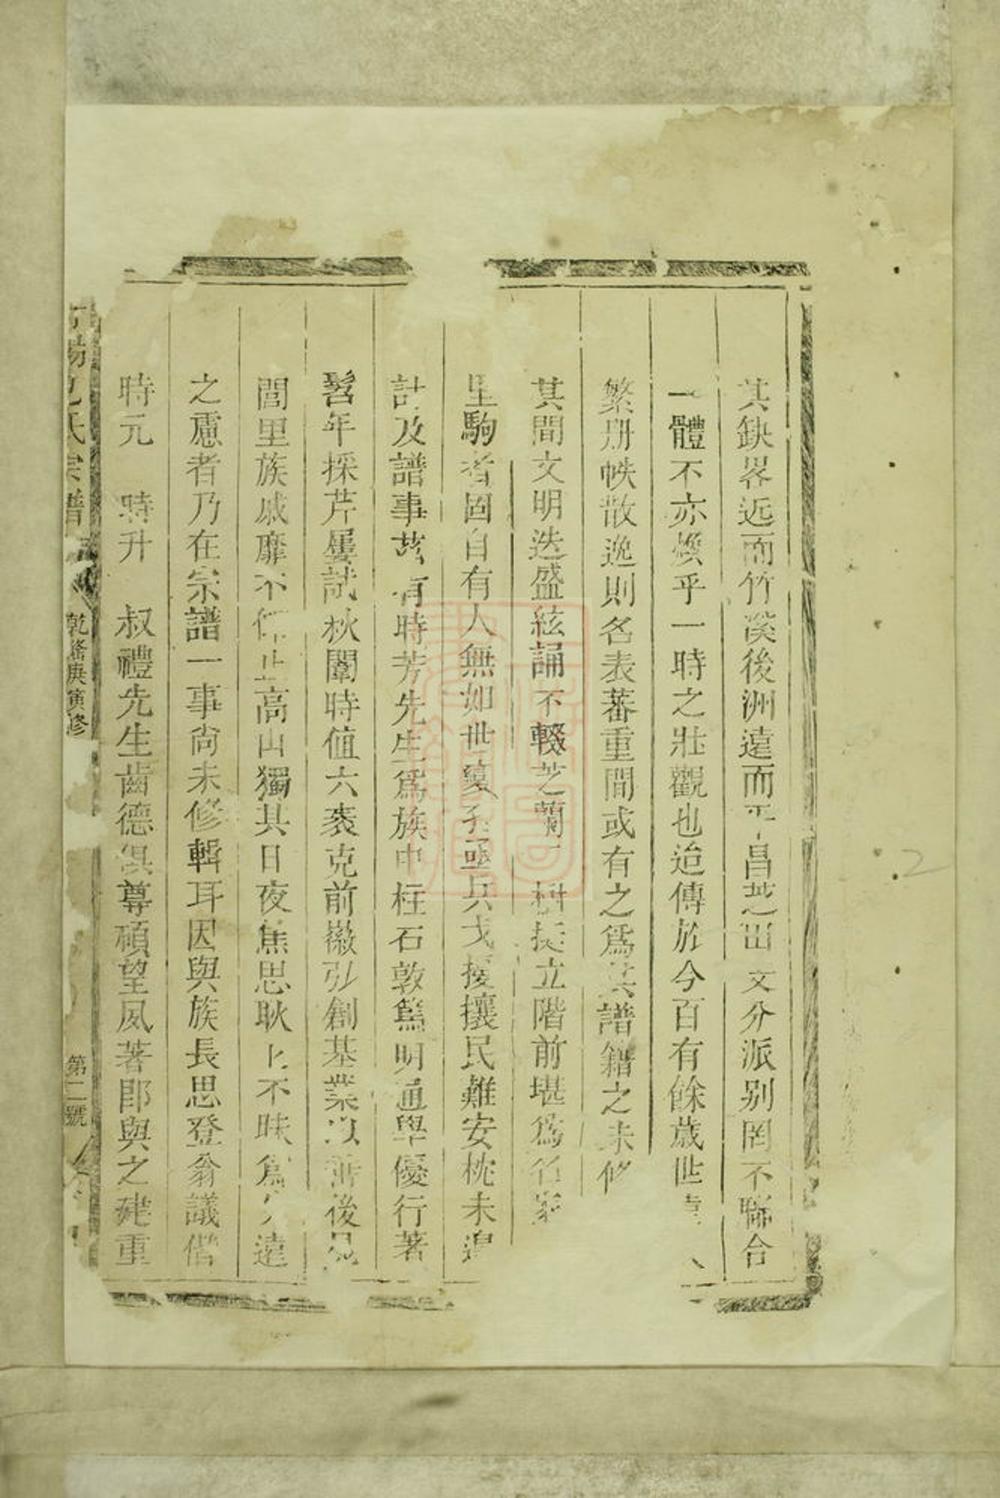 其缺畧近而竹溪後洲遠而平昌芝田文分派别罔不聯合
一體不亦煥乎一時之壯觀也迨傳於今百有餘歲世
繁册帙散逸則名表蕃重間或有之爲其譜籍之未修
其間文明迭盛絃誦不輟芝蘭挺立階前堪爲名家
里駒者固自有人無如世變孔亟兵戈擾攘民難安枕未遑
計及譜事茲有時芳先生爲族中柱石敦篤明通學優行著
髫年採芹屢試秋闈時值六袠克前徽弘創基業以善後昆
閭里族戚靡不仰止高山獨其日夜焦思耿耿不昧爲久遠
之慮者乃在宗譜一事尚未修輯耳因與族長思登翁議偕
時元 時升 叔禮先生齒德俱尊碩望夙著卽與之建重
氏宗譜 乾隆庚寅修 第二號